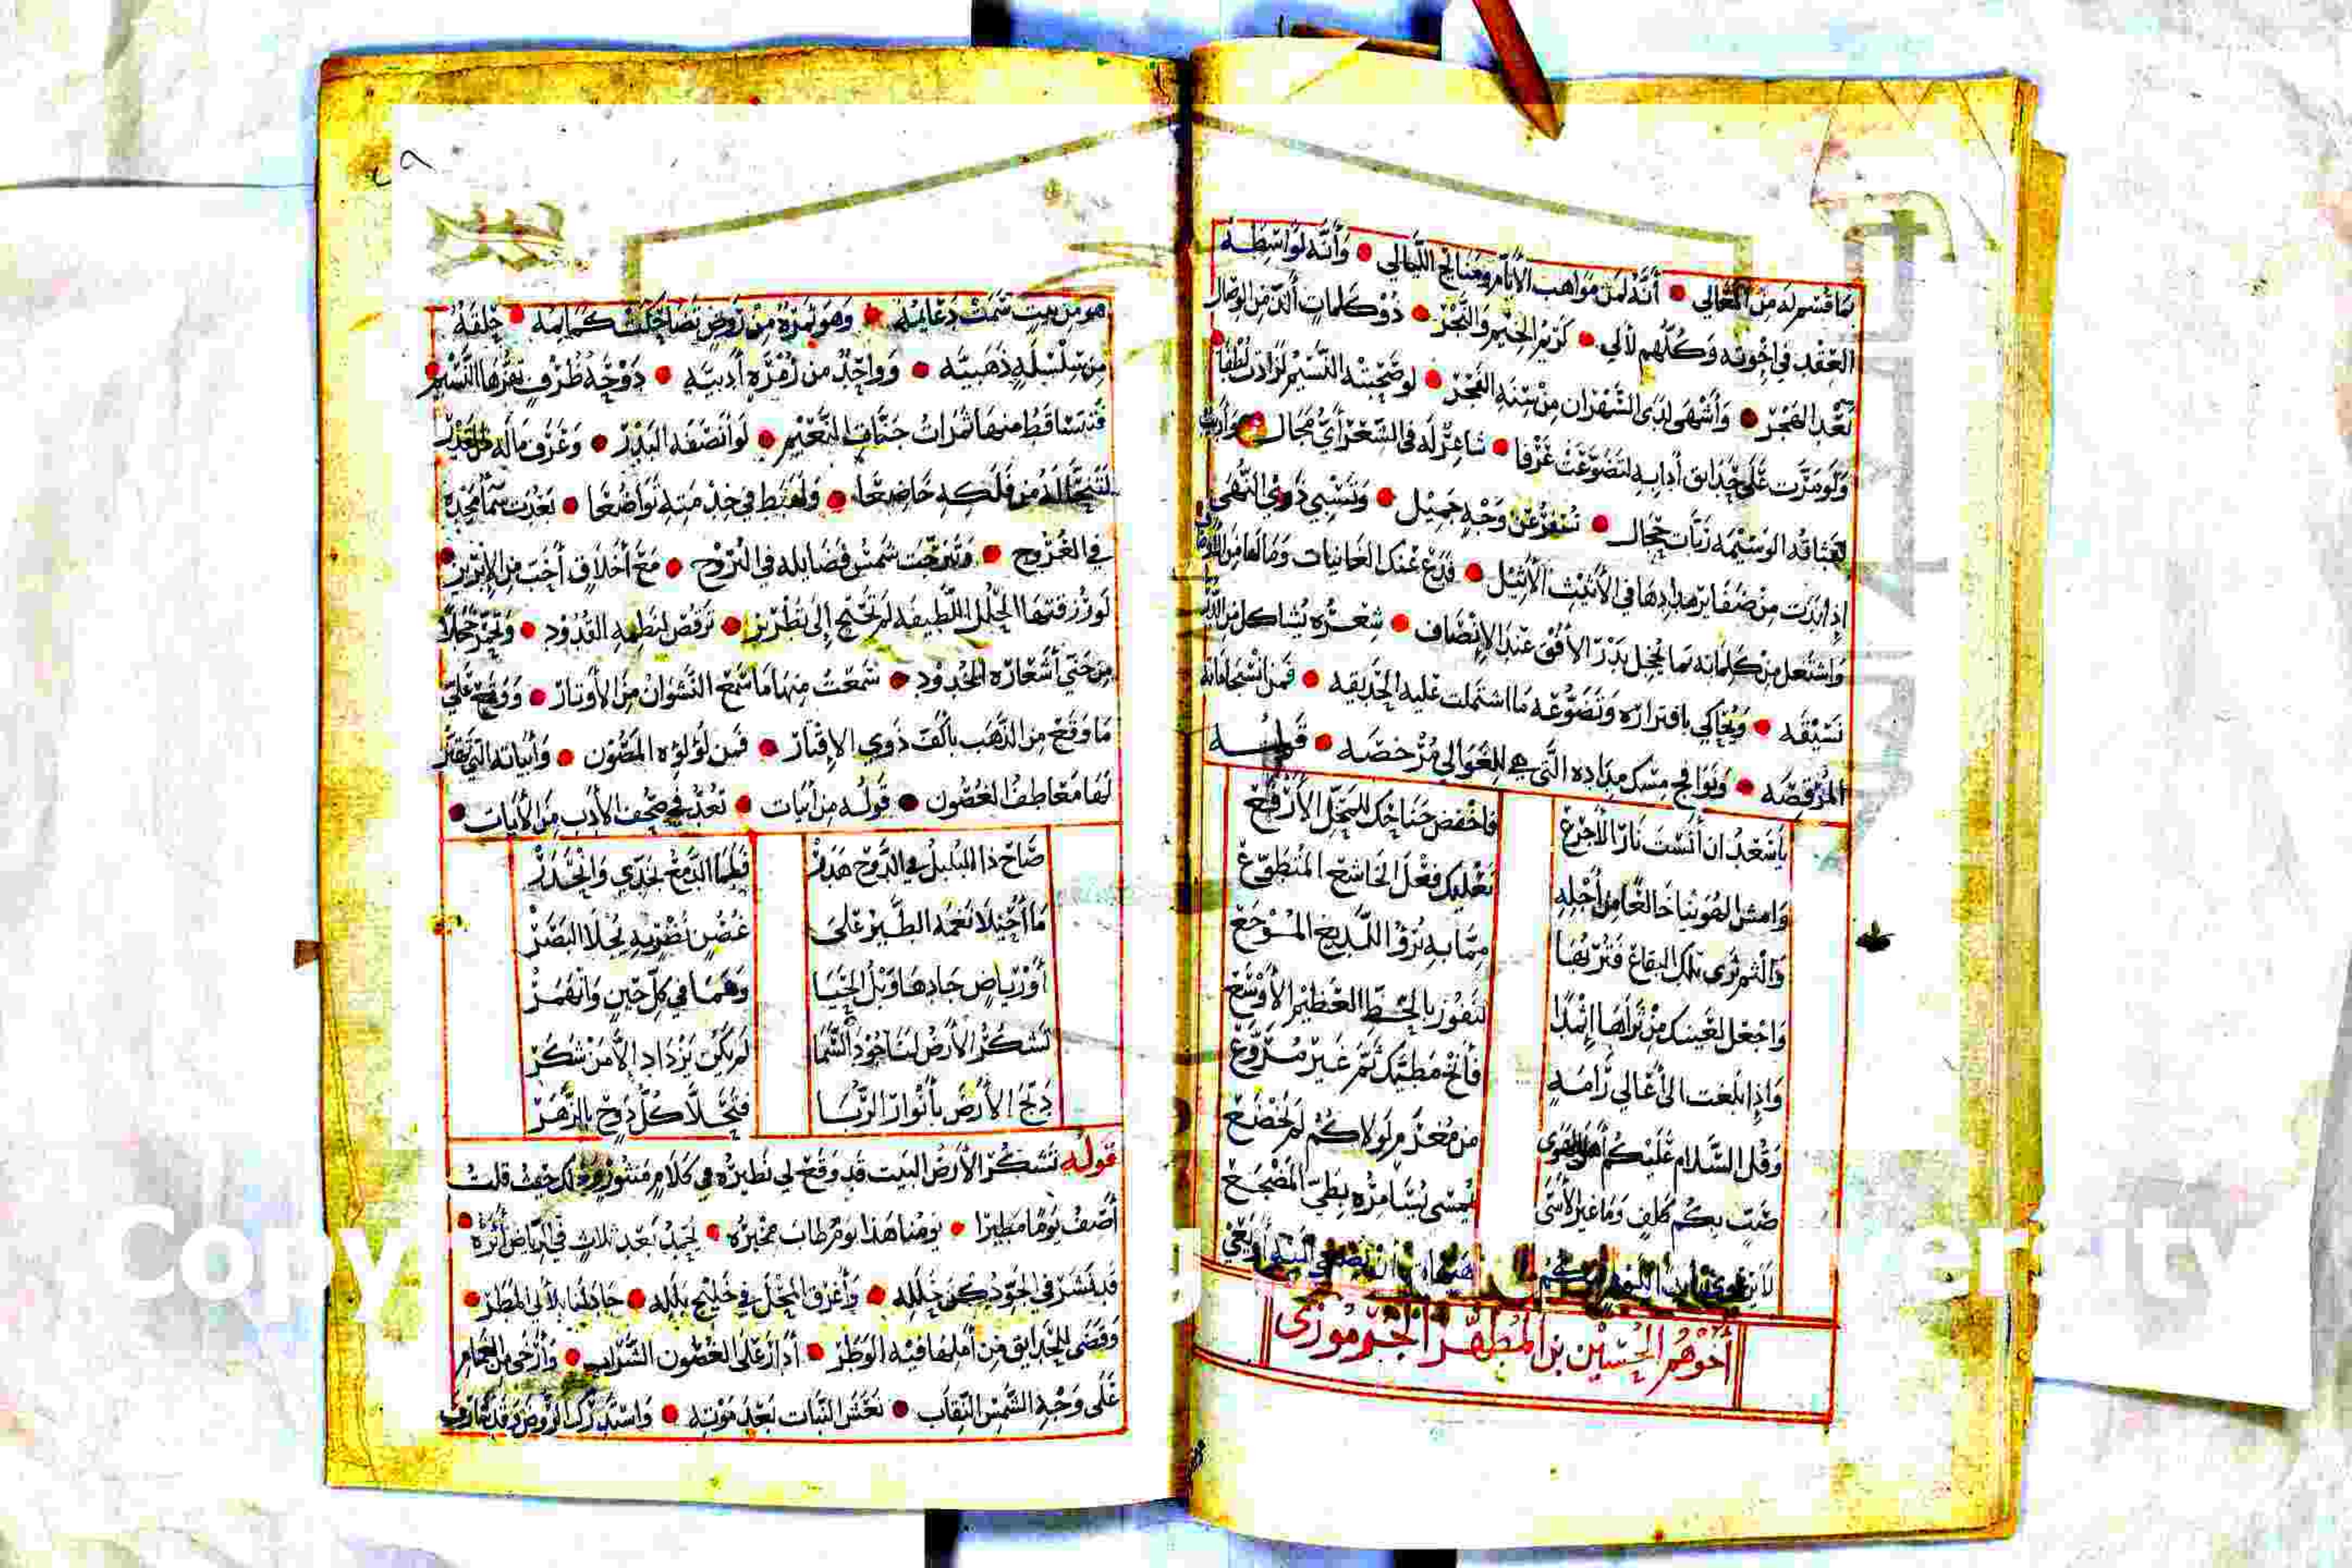 بما قسم له من المعالي • أنه لمن مواهب الأنام ومنايح الليالي • وأنه لواسطة
العقد في إخوته وكلهم لآلي • كريم الخيم والنجر • ذو كلمات ألذ من الوصال
بعد الهجر • وأشهى لدى السهران من سنة الفجر • لو صحبته النسيم لزادت لطفا
ولو مرت على حدايق آدابه لتضوعت عرفا • شاعر له في الشعر أي مجال
لعناقه الوسيمه ربات حجال • تسفر عن وجه جميل • وتسبي ذوي النهى
إذا بدت من ضفاير مدادها في الأثيث الأثيل • فدع عنك الغانيات
واشتعل من كلماته بما يخجل بدر الأفق عند الإنصاف • شعره يشاكل من الدر
نسيقه • ويحاكي بافتراره وتضوعه ما اشتملت عليه الحديقه •
المرقصه • ونوافج مسك مداده التي هي للغوالي مرخصه • قوله
يا سعد ان آنست نار الأجرع فاخفض جناحك للمحل الأرفع
وامش الهوينا خالعا من أجله نعليك فعل الخاشع المتطوع
والثم ثرى تلك البقاع فتربها مما به برؤ اللديغ الموجع
واجعل لعينك من ثراها إثمدا لتفوز بالحظ العظيم الأوسع
وإذا بلغت الى أعالي رامة فأنخ مطيك ثم غير مروع
وقل السلام عليكم من مغرم لولاكم لم يخضع
صب بكم كلف وما غير الأسى يمسي يسامره بطي المضجع
أخوهم الحسين بن المطهر الجرموزي
هو من بيت سمت دعايمه • وهو ثمرة من روض تضاحكت كمايمه • حلقة
من سلسلة ذهبيه • وواحد من زمرة أدبيه • دوحة ظرف يهزها النسيم
فتساقط منها ثمرات جنات النعيم • لو أنصفه البدر • وعرف ماله
من فلكه خاضعا • ولهبط في خدمته تواضعا •
في العروج • وتبرجت شمس فضايله في البروج • مع أخلاق أحب من الإبريز
لو زر فتها الحلل اللطيفه لم تحتج إلى تطريز • ترقص لنظمه القدود •
من حتي أشعاره الخدود • سمعت منها ما سمع النشوان من الأوتار • ووقع علي
ما وقع من الذهب بألف ذوي الإقتار • فمن لؤلؤه المصون • وأبياته التي
لها معاطف الغصون • قوله من أبيات • تعد في صحف الأدب من الآيات
صاح ذا البلبل في الدوح هدر فلما الدمع بخدي وانحدر
ما أحيلا نغمة الطير على غصن نضر به يجلا البصر
أو رياض جادها وبل الحيا وهما في كل حين وانهمر
تشكر الأرض لنا جود السما لم يكن يزداد إلا من شكر
دبج الأرض بأنوار الربا فتحلا كل دوح بالزهر
قوله تشكر الأرض البيت قد وقع لي نظيره في كلام منثور حيث قلت
أصف يوما مطيرا • يومنا هذا يوم طاب مخبره • نحمد بعد ثلاث في الرياض أثره
قد نشر في الجو دكن حلله • وأغرق المحل في خليج بلله • جاد لنا بلآلي المطر
وقضى للحدايق من أملها فيه الوطر • أدار على الغصون الشراب • وأرخى من الغمام
على وجه الشمس النقاب • نعش النبات بعد موته • واستدرك الروض
Copy
ersity